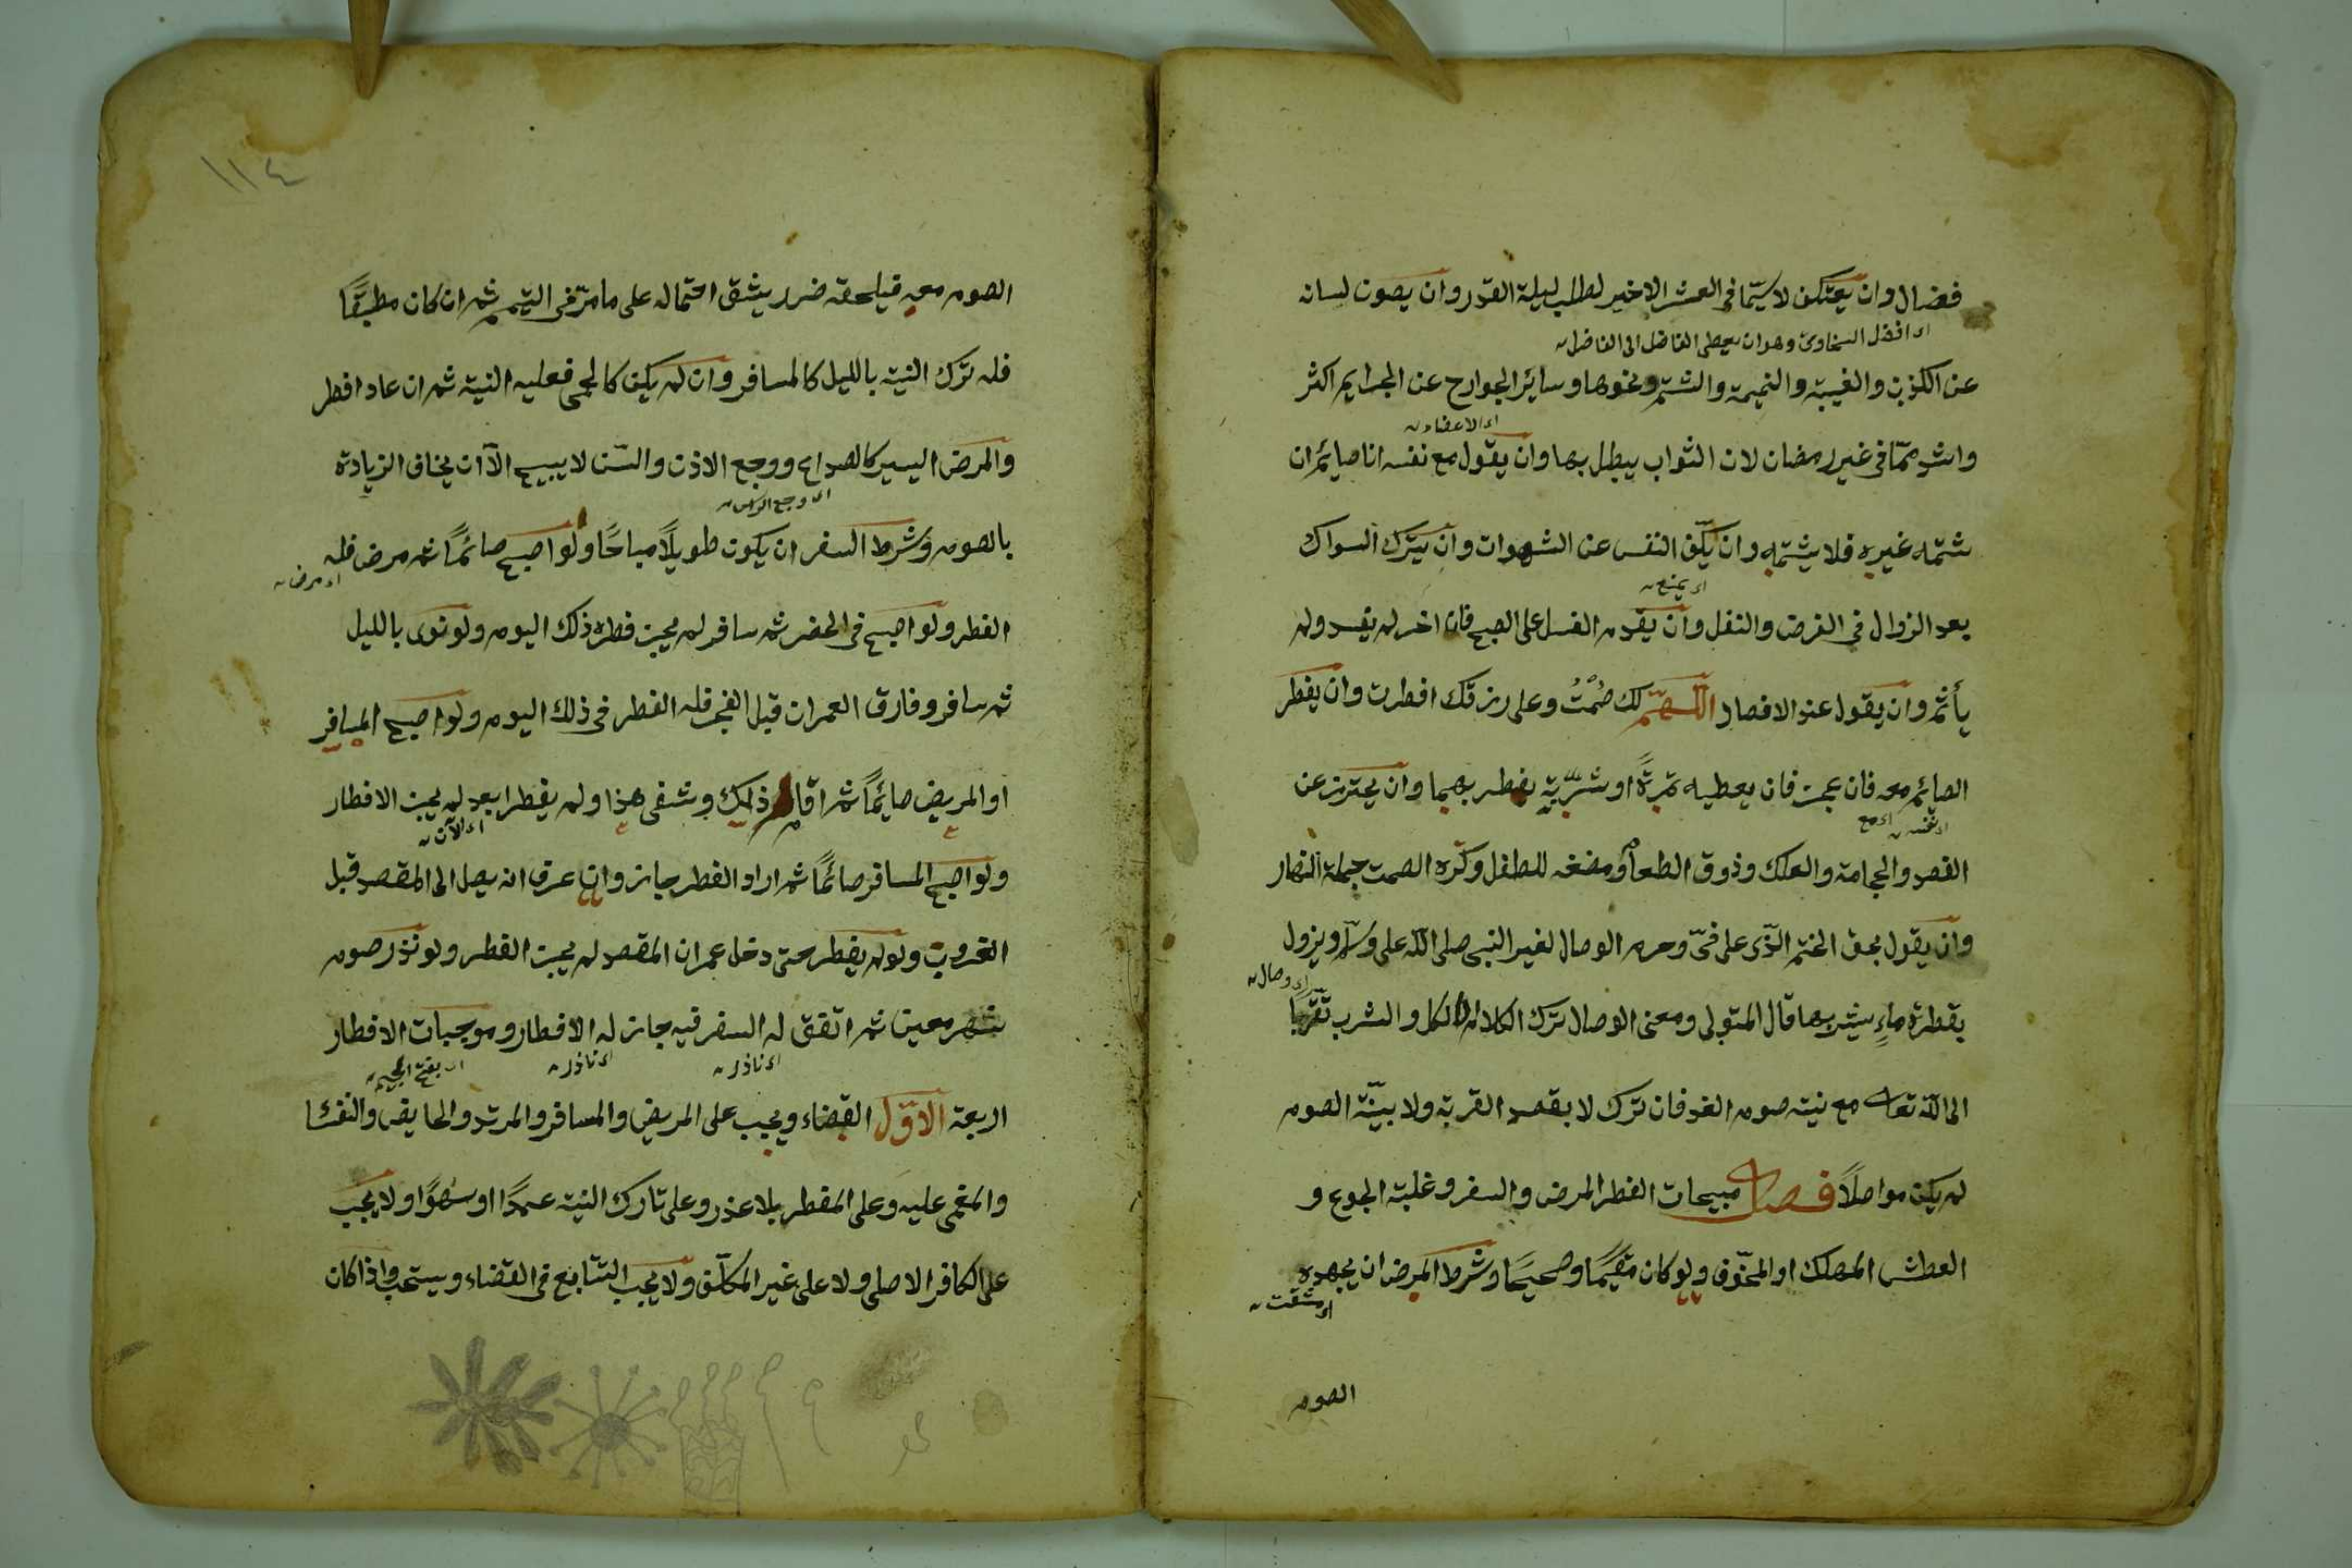 فضال وان يعتكف لا سيّما فى العشر الاخير لطلب ليلة القدر وان يصون لسانه
اى افضل السخاوى وهو ان يعطى الفاضل الى الفاضل
عن الكذب والغيبة والنميمة والشتم ونحوها وسائر الجوارح عن الجرايم اكثر
اى الاعضاء
واشد ممّا فى غير رمضان لان الثواب يبطل بها وان يقول مع نفسه انا صايم ان
شتمه غيره فلا يشتمه وان يكفّ النفس عن الشهوات وان يترك السواك
اى يمنع
بعد الزوال فى الفرض والنفل وان يقدم الغسل على الصبح فان اخر لم يفسد ولم
يأثم وان يقول عند الافطار اللّهمّ لك صُمْتُ وعلى رزقك افطرت وان يفطر
الصايم معه فان عجز فان يعطيه تمرةً او شربةٍ يفطر بهما وان يحترز عن
اى نفسه اى مع
الفصد والحجامة والعلك وذوق الطعام ومضغه للطفل وكره الصمت جملة النهار
وان يقول بحق الختم الّذى على فىّ وحرم الوصال لغير النبى صلى اللّه على وسلّم ويزول
اى وصال
بقطرة ماءٍ يشربها قال المتولى ومعنى الوصال ترك الكلام الاكل والشرب تقرّبًا
الى اللّه تعالى مع نية صوم الغد فان ترك لا بقصد القربة ولا بنيّة الصوم
لم يكن مواصلًا فصل مبيحات الفطر المرض والسفر وغلبة الجوع و
العطش المهلك او المخوّف ولو كان مقيمًا وصحيحًا وشرط المرض ان يجهده
اى مشقت
الصوم
١١٤
الصوم معه فيلحقه ضرر يشق احتماله على ما مرّ فى التيمم ثم ان كان مطبقًا
فله ترك النية بالليل كالمسافر وان لم يكن كالحمى فعليه النية ثم ان عاد افطر
والمرض اليسير كالصداع ووجع الاذن والسّن لا يبيح الّا ان يخاف الزيادة
اى وجع الرأس
بالصوم وشرط السفر ان يكون طويلًا مباحًا ولو اصبح صائمًا ثم مرض فله
اى مرض
الفطر ولو اصبح فى الحضر ثم سافر لم يجز فطره ذلك اليوم ولو نوى بالليل
ثم سافر وفارق العمران قبل الفجر فله الفطر فى ذلك اليوم ولو اصبح المسافر
او المريض صايمًا ثم اقام ذلك وشفى هذا ولم يفطرا بعد لم يجز الافطار
اى الآن
ولو اصبح المسافر صائمًا ثم اراد الفطر جاز وان عرف انه يصل الى المقصد قبل
الغروب ولو لم يفطر حتى دخل عمران المقصد لم يجز الفطر ولو نذر صوم
شهر معين ثم اتفق له السفر فيه جاز له الافطار وموجبات الافطار
اى ناذر اى ناذر اى بفتح الجيم
اربعة الاوّل القضاء ويجب على المريض والمسافر والمرتد والحايض والنفسا
والمغمى عليه وعلى المفطر بلا عذر وعلى تارك النية عمدًا او سهوًا ولا يجب
على الكافر الاصلى ولا على غير المكلّف ولا يجب التتابع فى القضاء ويستحب واذا كان